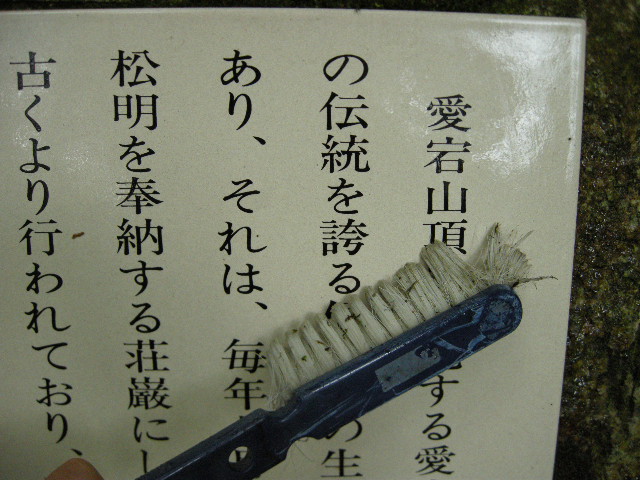 愛宕山頂
する愛
の伝統を誇る
の生
あり、それは、毎年
松明を奉納する荘厳にし
古くより行われており、